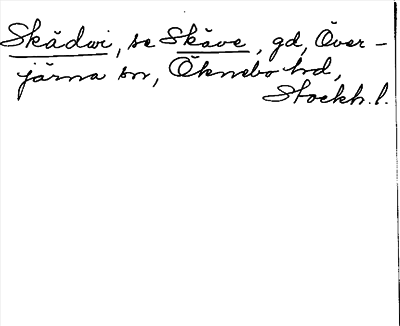 Skädwi, se Skäve, gd, Över-
järna sn, Öknebo hd,
Stockh. l.